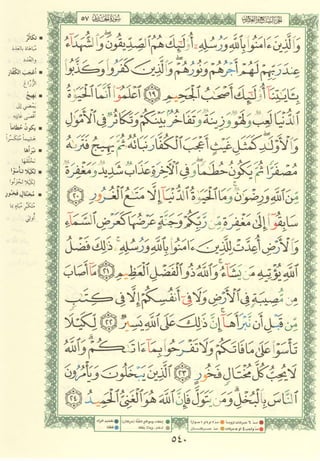 ٥٧
وَالَّذِينَ ءَامَنُوا۟ بِاللَّهِ وَرُسُلِهِۦٓ أُو۟لَٰٓئِكَ هُمُ الصِّدِّيقُونَ ۖ وَالشُّهَدَآءُ
عِندَ رَبِّهِمْ لَهُمْ أَجْرُهُمْ وَنُورُهُمْ ۖ وَالَّذِينَ كَفَرُوا۟ وَكَذَّبُوا۟
بِـَٔايَٰتِنَآ أُو۟لَٰٓئِكَ أَصْحَٰبُ الْجَحِيمِ ١٩ اعْلَمُوٓا۟ أَنَّمَا الْحَيَوٰةُ
الدُّنْيَا لَعِبٌ وَلَهْوٌ وَزِينَةٌ وَتَفَاخُرٌۢ بَيْنَكُمْ وَتَكَاثُرٌ فِى الْأَمْوَٰلِ
وَالْأَوْلَٰدِ ۖ كَمَثَلِ غَيْثٍ أَعْجَبَ الْكُفَّارَ نَبَاتُهُۥ ثُمَّ يَهِيجُ فَتَرَىٰهُ
مُصْفَرًّا ثُمَّ يَكُونُ حُطَٰمًا ۖ وَفِى الْـَٔاخِرَةِ عَذَابٌ شَدِيدٌ وَمَغْفِرَةٌ
مِّنَ اللَّهِ وَرِضْوَٰنٌ ۚ وَمَا الْحَيَوٰةُ الدُّنْيَآ إِلَّا مَتَٰعُ الْغُرُورِ ٢٠
سَابِقُوٓا۟ إِلَىٰ مَغْفِرَةٍ مِّن رَّبِّكُمْ وَجَنَّةٍ عَرْضُهَا كَعَرْضِ السَّمَآءِ
وَالْأَرْضِ أُعِدَّتْ لِلَّذِينَ ءَامَنُوا۟ بِاللَّهِ وَرُسُلِهِۦ ۚ ذَٰلِكَ فَضْلُ
اللَّهِ يُؤْتِيهِ مَن يَشَآءُ ۚ وَاللَّهُ ذُو الْفَضْلِ الْعَظِيمِ ٢١ مَآ أَصَابَ
مِن مُّصِيبَةٍ فِى الْأَرْضِ وَلَا فِىٓ أَنفُسِكُمْ إِلَّا فِى كِتَٰبٍ
مِّن قَبْلِ أَن نَّبْرَأَهَآ ۚ إِنَّ ذَٰلِكَ عَلَى اللَّهِ يَسِيرٌ ٢٢ لِّكَيْلَا
تَأْسَوْا۟ عَلَىٰ مَا فَاتَكُمْ وَلَا تَفْرَحُوا۟ بِمَآ ءَاتَىٰكُمْ ۗ وَاللَّهُ
لَا يُحِبُّ كُلَّ مُخْتَالٍ فَخُورٍ ٢٣ الَّذِينَ يَبْخَلُونَ وَيَأْمُرُونَ
النَّاسَ بِالْبُخْلِ ۗ وَمَن يَتَوَلَّ فَإِنَّ اللَّهَ هُوَ الْغَنِىُّ الْحَمِيدُ ٢٤
٥٤٠